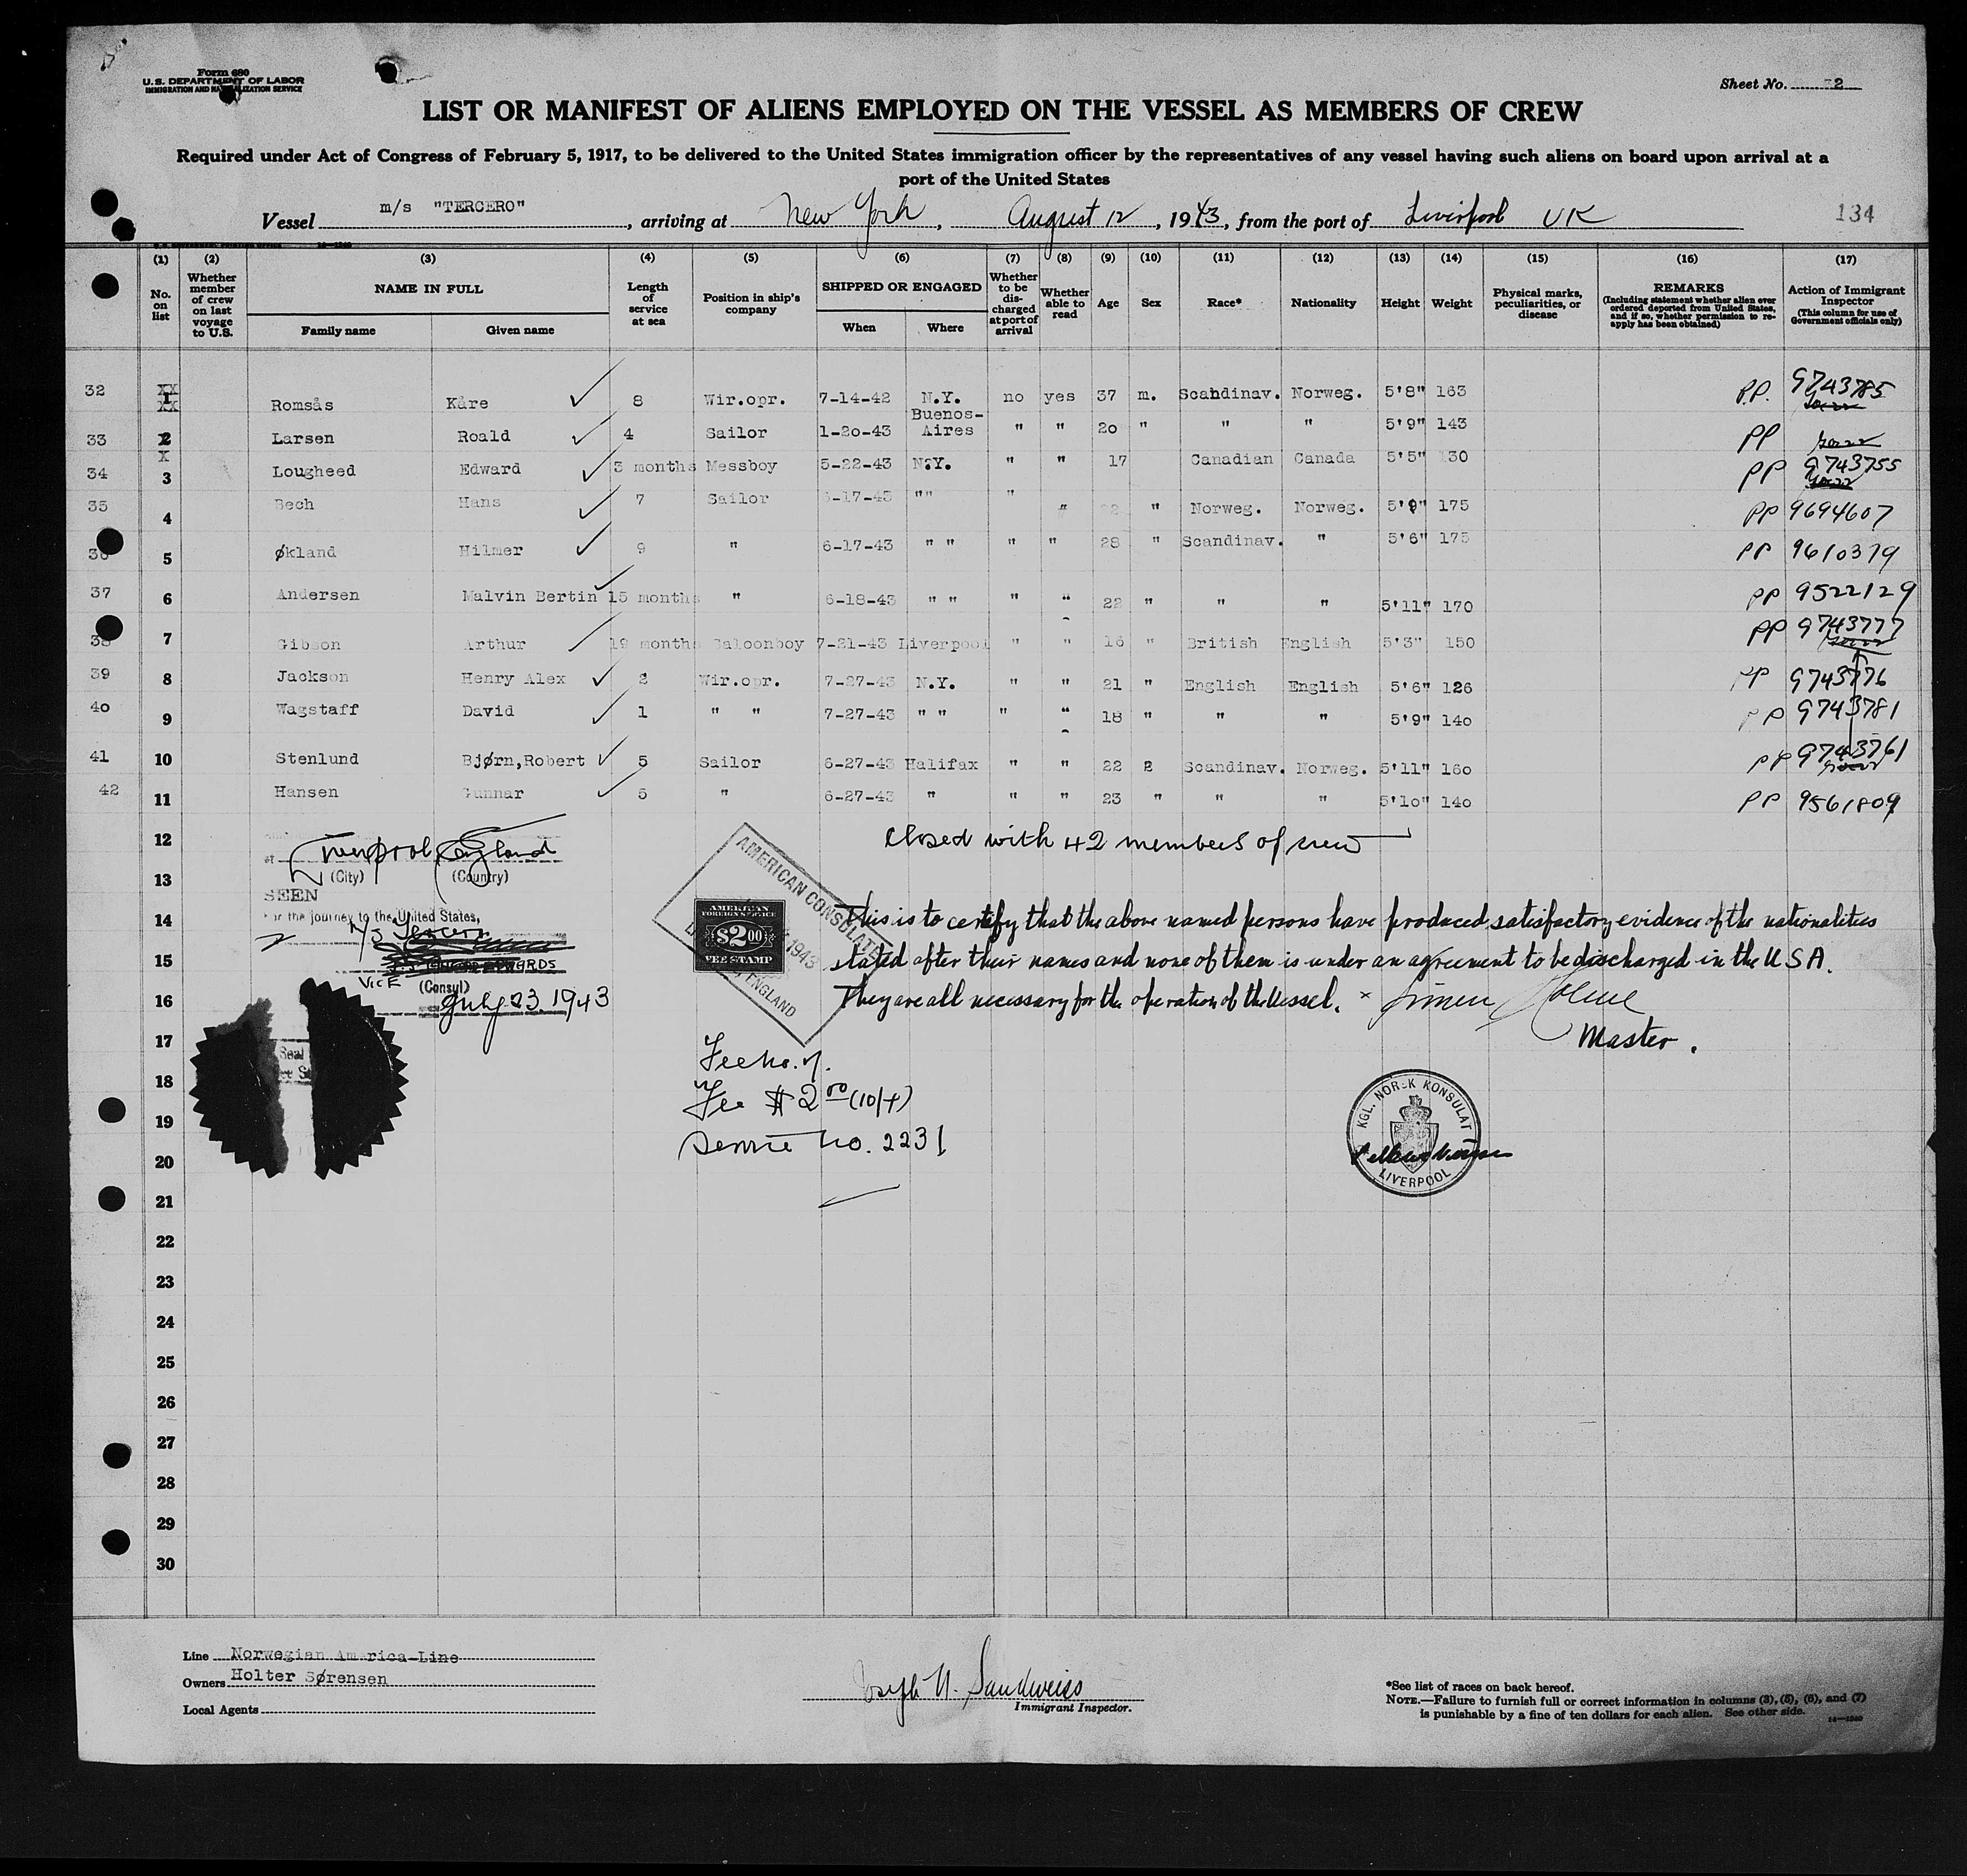 Form 680
U. S. DEPARTMENT OF LABOR
IMMIGRATION AND NATURALIZATION SERVICE
Sheet No. 2
LIST OR MANIFEST OF ALIENS EMPLOYED ON THE VESSEL AS MEMBERS OF CREW
Required under Act of Congress of February 5, 1917, to be delivered to the United States immigration officer by the representatives of any vessel having such aliens on board upon arrival at a
port of the United States
Vessel m/s "TERCERO", arriving at New York, August 12, 1943, from the port of Liverpool UK
134
(1) No. on list (2) Whether member of crew on last voyage to U.S. (3) NAME IN FULL Family name Given name (4) Length of service at sea (5) Position in ship's company (6) SHIPPED OR ENGAGED When Where (7) Whether to be discharged at port of arrival (8) Whether able to read (9) Age (10) Sex (11) Race* (12) Nationality (13) Height (14) Weight (15) Physical marks, peculiarities, or disease (16) REMARKS (Including statement whether alien ever ordered deported from United States, and if so, whether permission to reapply has been obtained) (17) Action of Immigrant Inspector (This column for use of Government officials only)
32 1 Romsås Kåre 8 Wir.opr. 7-14-42 N.Y. no yes 37 m. Scandinav. Norweg. 5'8" 163 P.P. 9743785
33 2 Larsen Roald 4 Sailor 1-20-43 Buenos-Aires " " 20 " " " 5'9" 143 PP
34 3 Lougheed Edward 3 months Messboy 5-22-43 N.Y. " " 17 Canadian Canada 5'5" 130 PP 9743755
35 4 Bech Hans 7 Sailor 6-17-43 "" " " 22 " Norweg. Norweg. 5'9" 175 PP 9694607
36 5 Økland Hilmer 9 " 6-17-43 " " " " 28 " Scandinav. " 5'6" 175 PP 9610379
37 6 Andersen Malvin Bertin 15 months " 6-18-43 " " " " 22 " " " 5'11" 170 PP 9522129
38 7 Gibson Arthur 19 months Saloonboy 7-21-43 Liverpool " " 16 " British English 5'3" 150 PP 9743777
39 8 Jackson Henry Alex 2 Wir.opr. 7-27-43 N.Y. " " 21 " English English 5'6" 126 PP 9743776
40 9 Wagstaff David 1 " " 7-27-43 " " " " 18 " " " 5'9" 140 PP 9743781
41 10 Stenlund Bjørn,Robert 5 Sailor 6-27-43 Halifax " " 22 Scandinav. Norweg. 5'11" 160 PP 9743761
42 11 Hansen Gunnar 5 " 6-27-43 " " " 23 " " " 5'10" 140 PP 9561809
12 Closed with 42 members of crew
at Liverpool, England
(City) (Country)
13
SEEN
14 For the journey to the United States,
M/S Tercero
15
VICE (Consul)
16 July 23. 1943
AMERICAN CONSULATE
1943
ENGLAND
AMERICAN
FOREIGN SERVICE
$2.00
FEE STAMP
This is to certify that the above named persons have produced satisfactory evidence of the nationalities
stated after their names and none of them is under an agreement to be discharged in the U S A.
They are all necessary for the operation of the vessel. x
Master.
17
Seal
Fee No.
18
Fee $2 00 (10/-)
19
Service No. 2231
20
KGL. NORSK KONSULAT
LIVERPOOL
21
22
23
24
25
26
27
28
29
30
Line Norwegian America-Line
Owners Holter Sørensen
Local Agents
Joseph N. Sandweiss
Immigrant Inspector.
*See list of races on back hereof.
NOTE.—Failure to furnish full or correct information in columns (3), (5), (6), and (7)
is punishable by a fine of ten dollars for each alien. See other side.